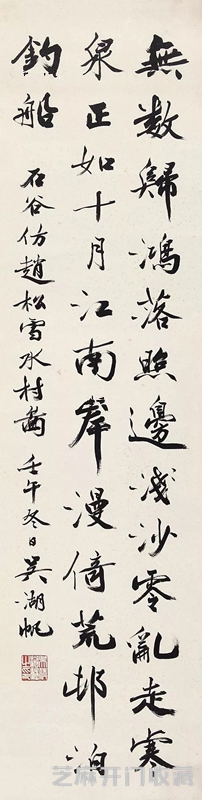 無数歸鴻落照邊淺沙零亂走寒
泉正如十月江南岸漫倚荒邨泊
釣船
石谷仿趙松雪水村啚 壬午冬日 吳湖帆
芝麻开门收藏